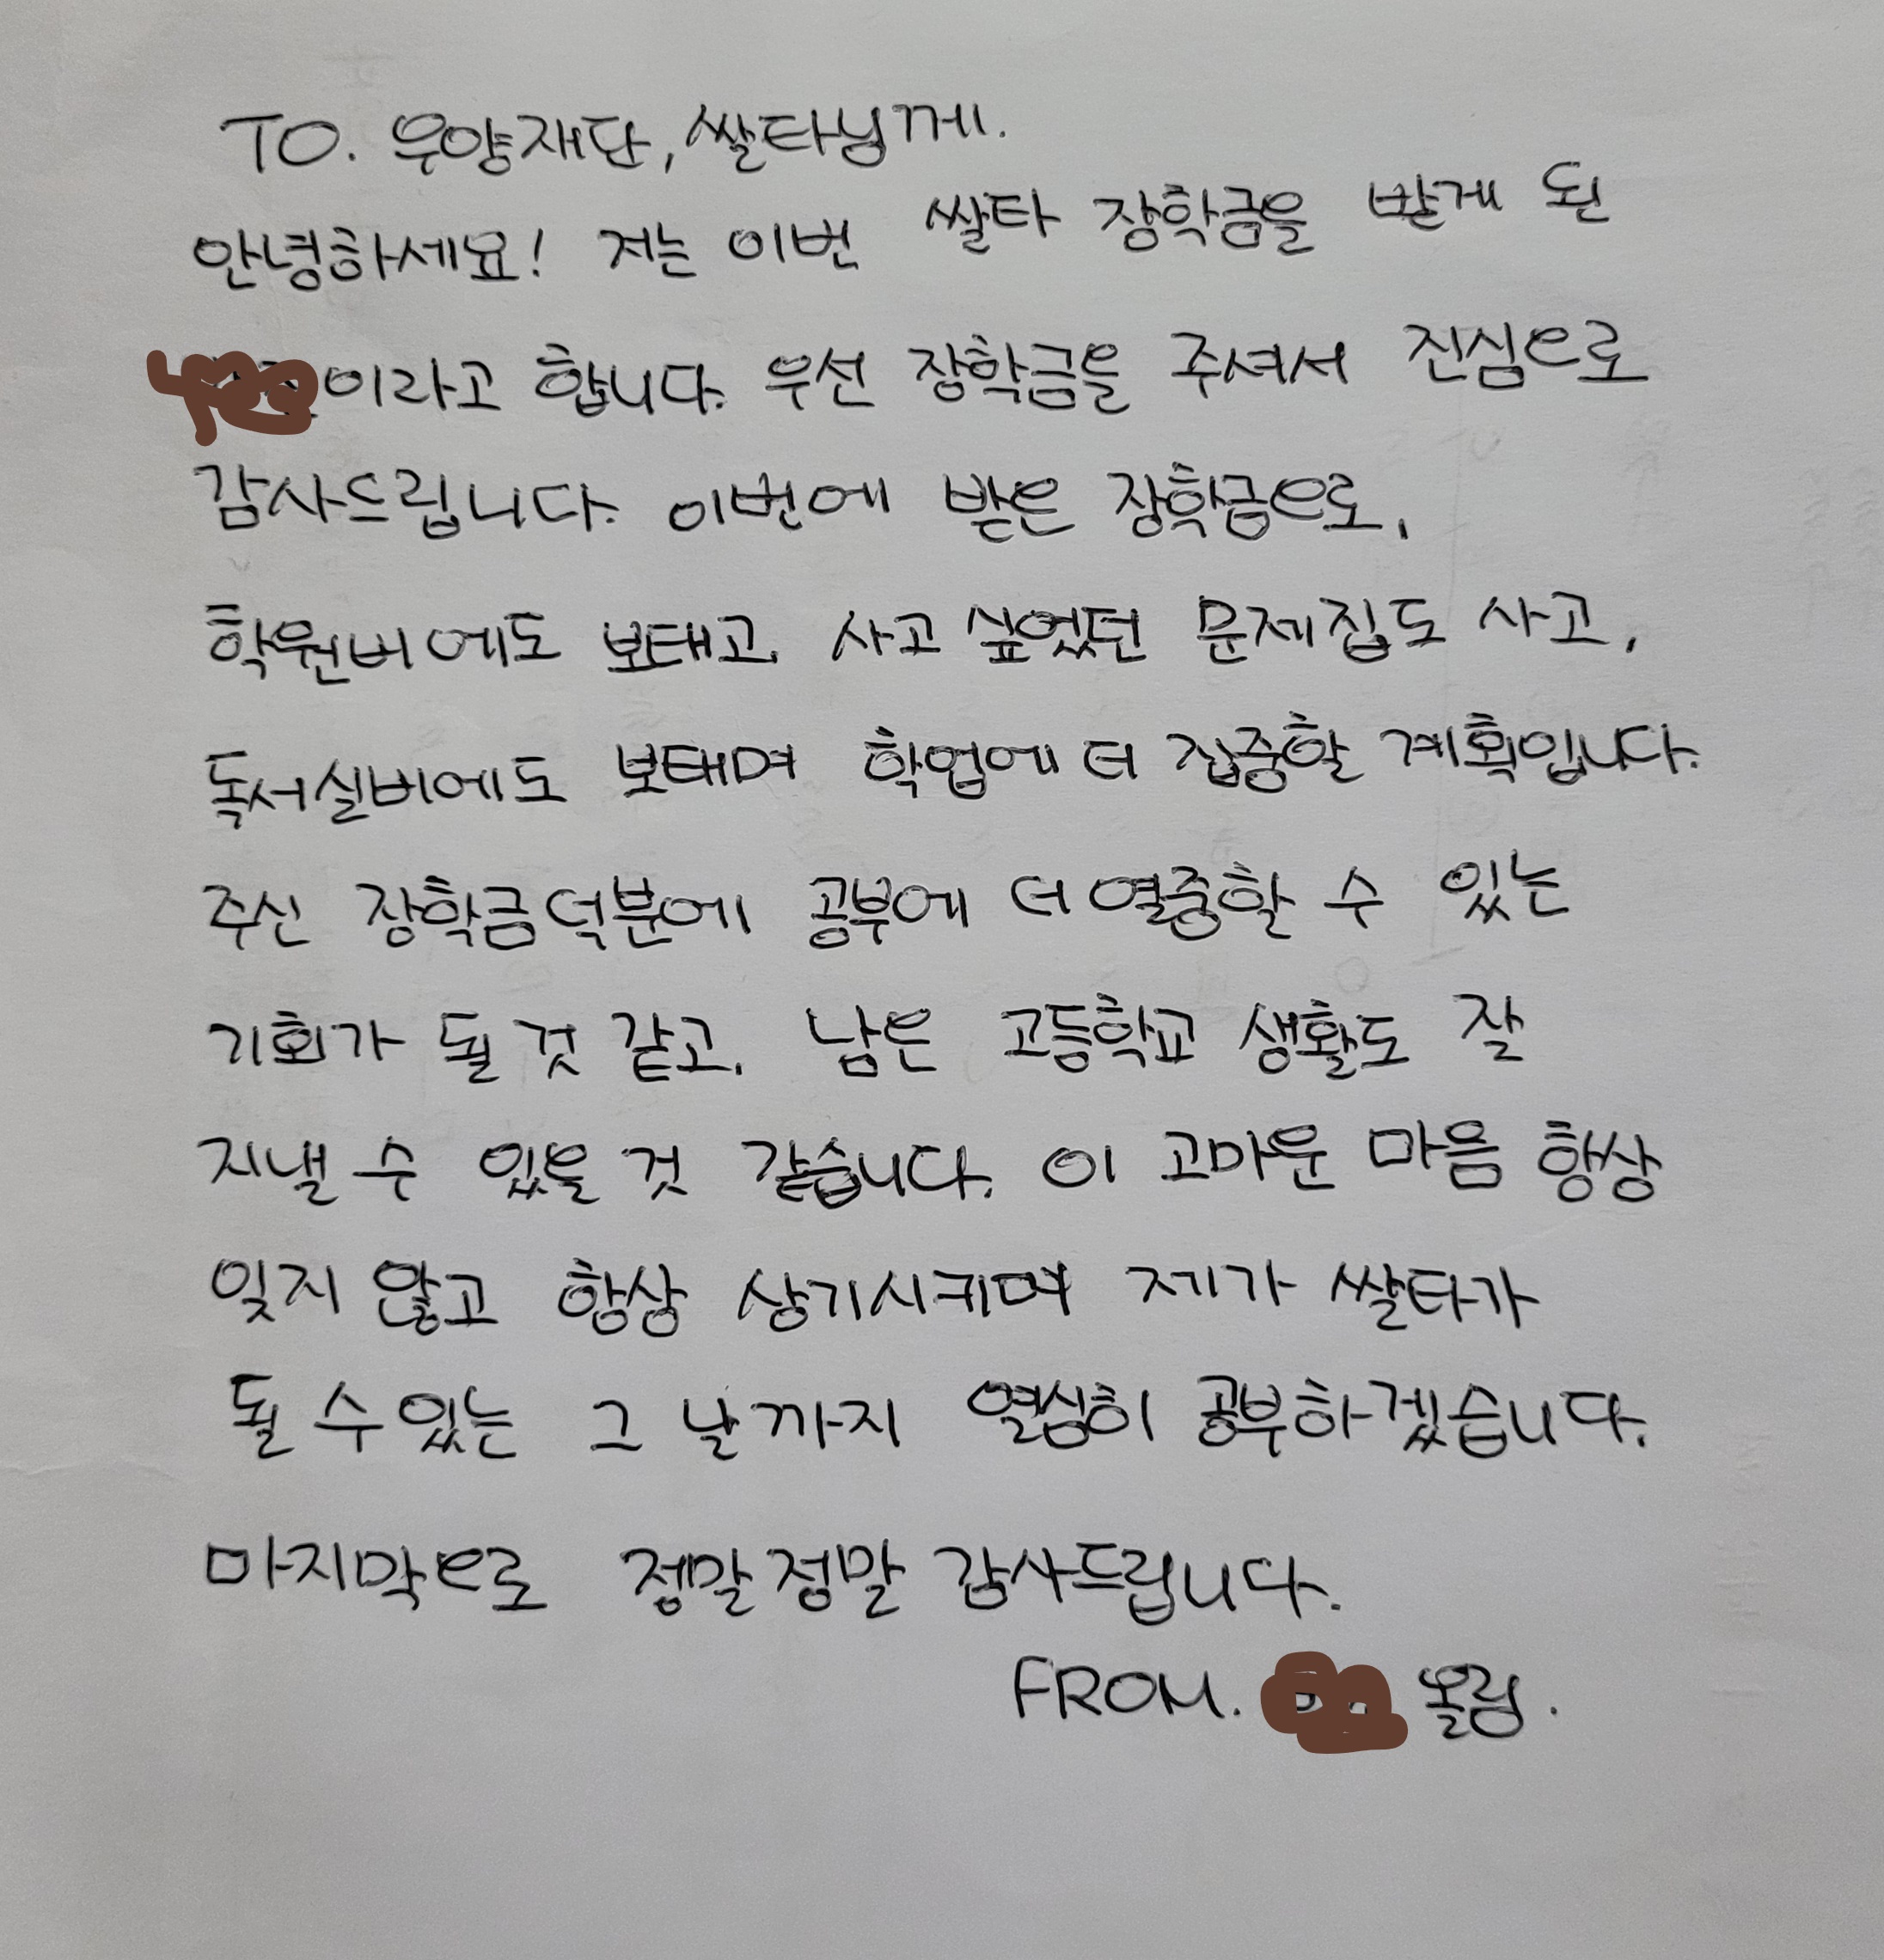 TO. 우양재단, 쌀타님께.
안녕하세요! 저는 이번 쌀타 장학금을 받게 된
이라고 합니다. 우선 장학금을 주셔서 진심으로
감사드립니다. 이번에 받은 장학금으로,
학원비에도 보태고, 사고 싶었던 문제집도 사고,
독서실비에도 보태며 학업에 더 집중할 계획입니다.
주신 장학금 덕분에 공부에 더 열중할 수 있는
기회가 될 것 같고, 남은 고등학교 생활도 잘
지낼 수 있을 것 같습니다. 이 고마운 마음 항상
잊지 않고 항상 상기시키며 제가 쌀타가
될 수 있는 그 날까지 열심히 공부하겠습니다.
마지막으로 정말 정말 감사드립니다.
FROM. 올림.